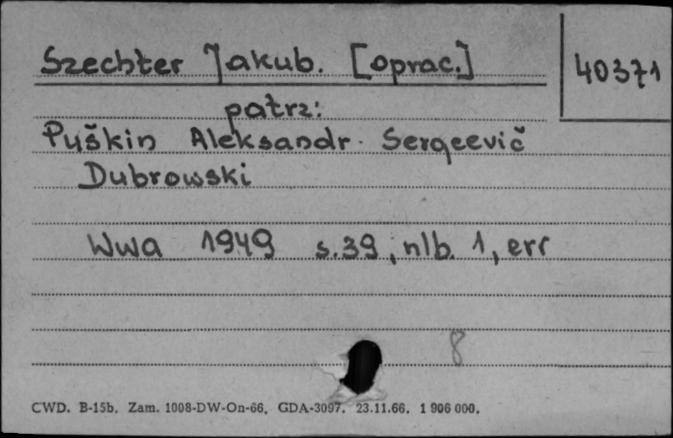 Szechter Jakub. [oprac.]
40371
patrz:
Puškin Aleksandr Sergeevič
Dubrowski
Wwa 1949 s. 39, nlb. 1, err
8
CWD. B-15b. Zam. 1008-DW-On-66. GDA-3097. 23.11.66. 1 906 000.